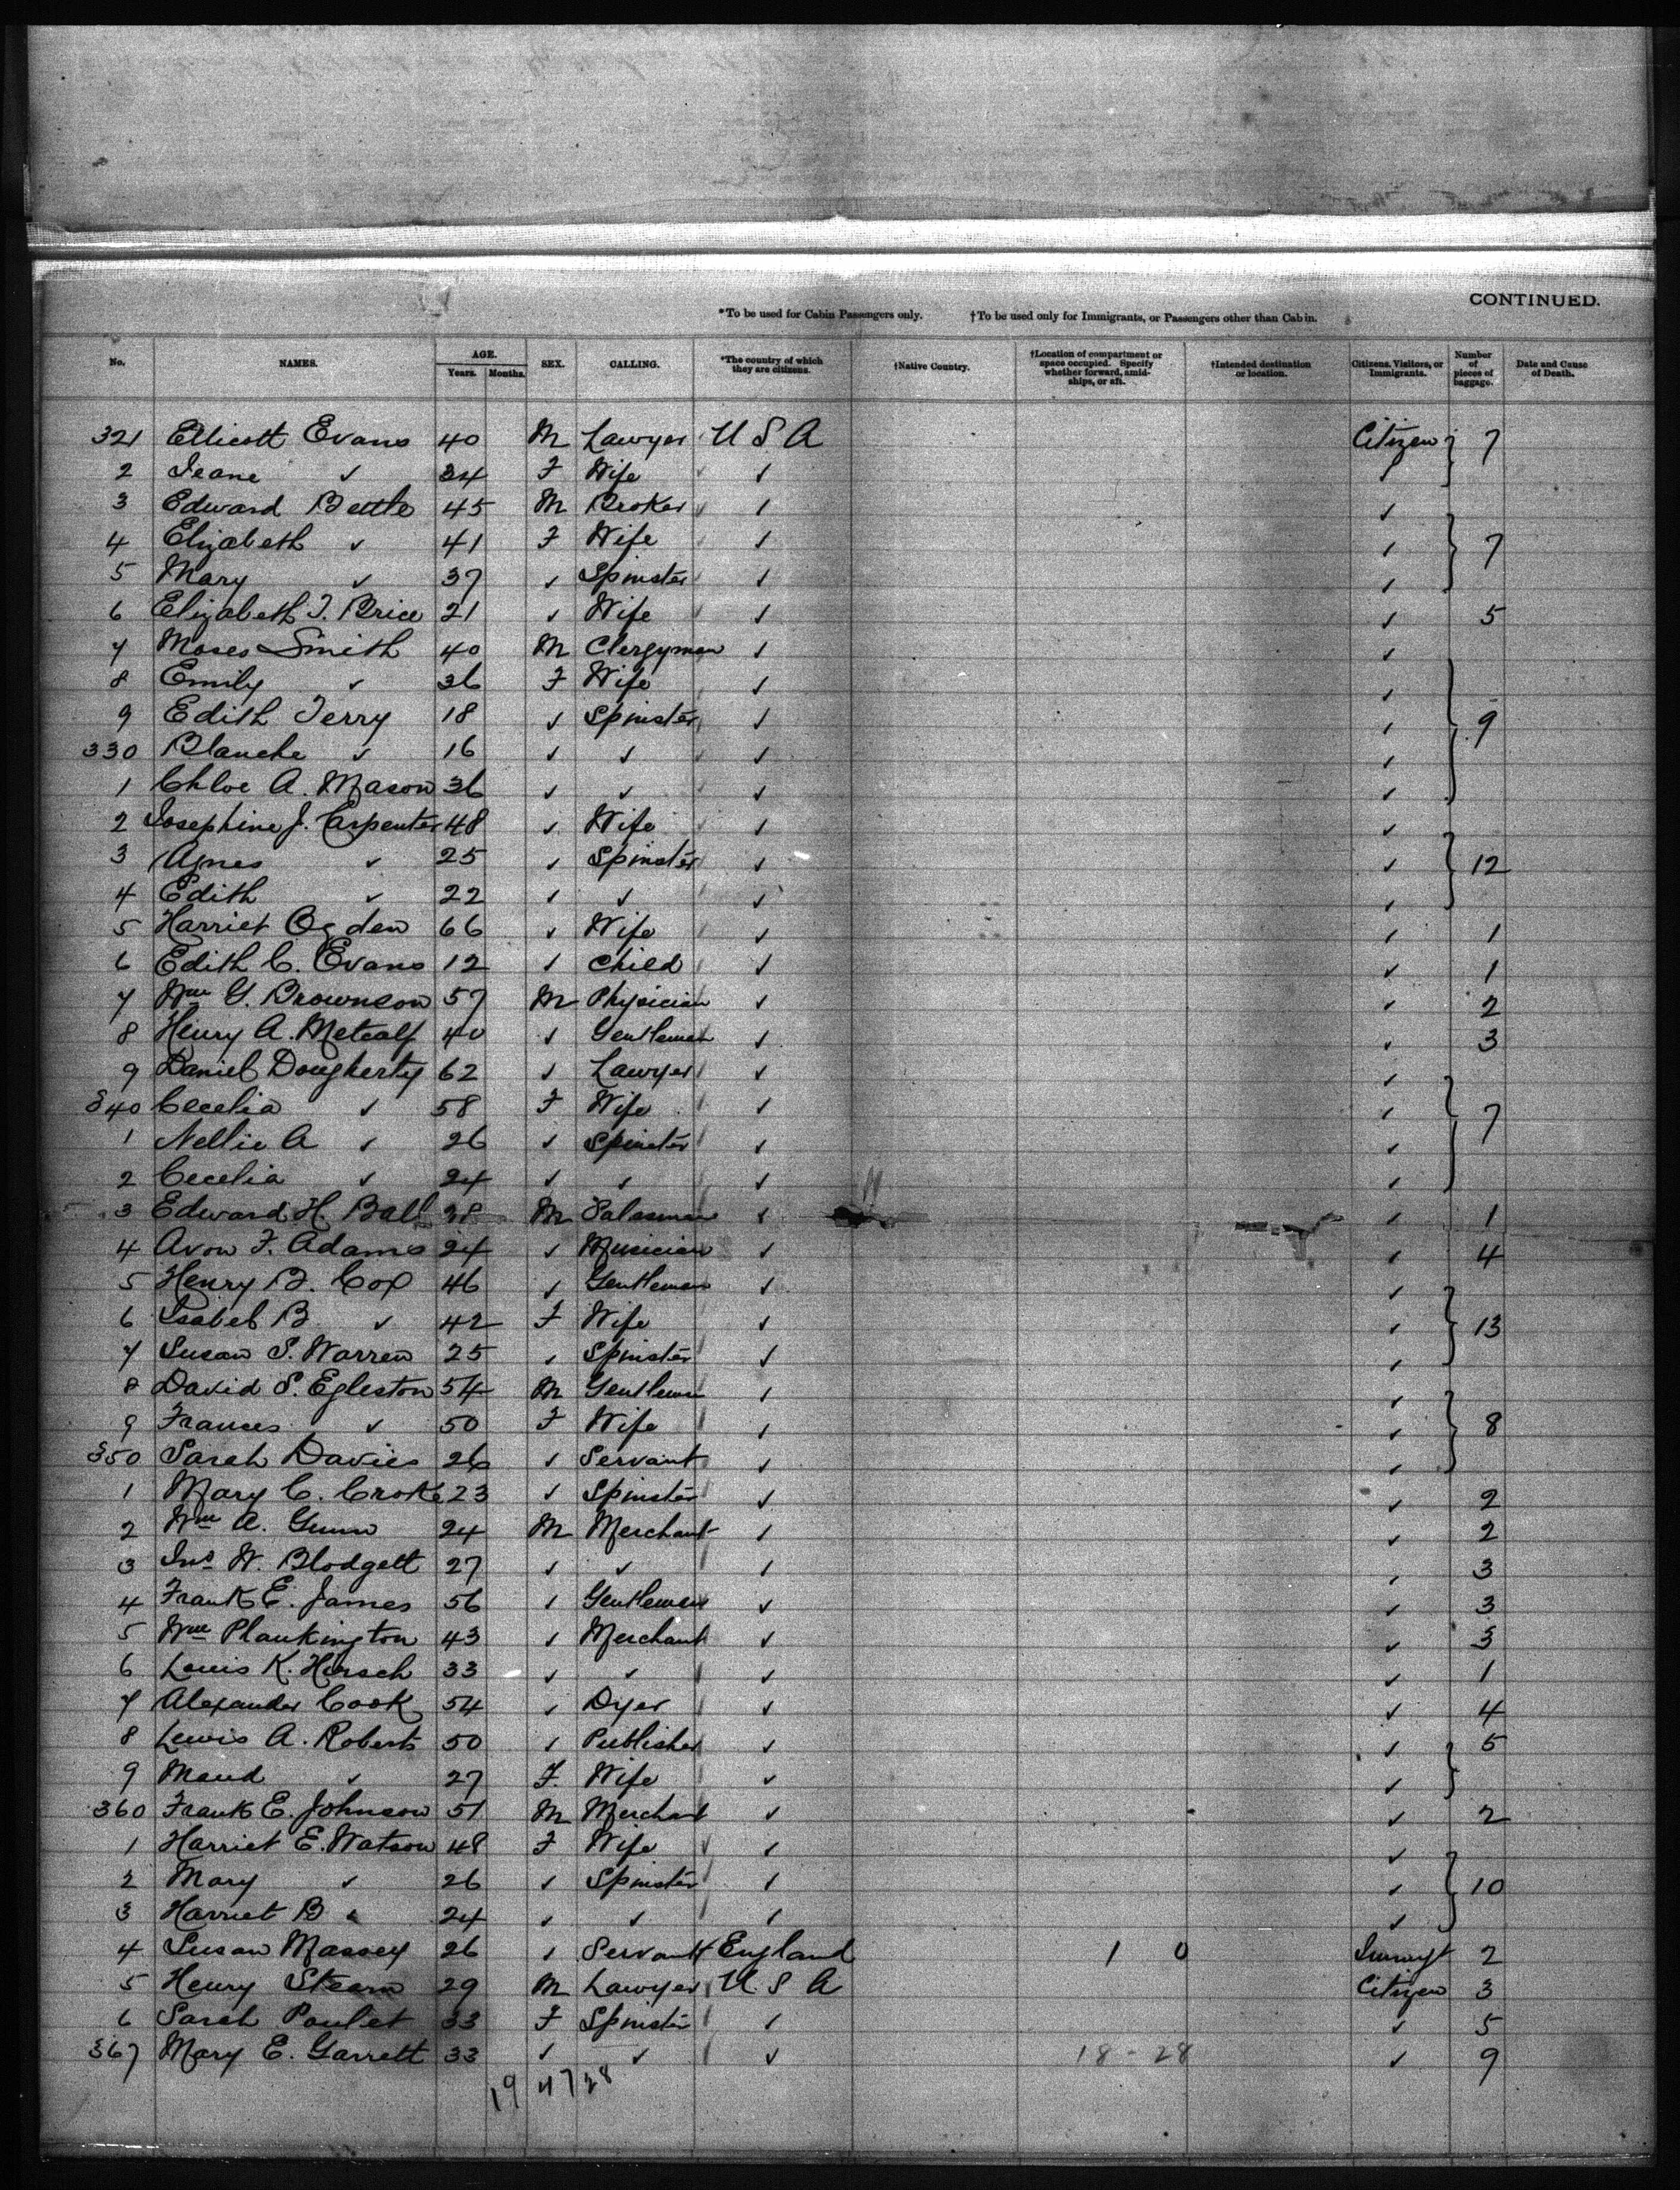 CONTINUED.
*To be used for Cabin Passengers only. †To be used only for Immigrants, or Passengers other than Cabin.
No. NAMES. AGE. Years. Months. SEX. CALLING. *The country of which they are citizens. †Native Country. †Location of compartment or space occupied. Specify whether forward, amidships, or aft. †Intended destination or location. Citizens, Visitors, or Immigrants. Number of pieces of baggage. Date and Cause of Death.
321 Ellicott Evans 40 M Lawyer U S A Citizen 7
2 Jeane ✓ 34 F Wife ✓ ✓
3 Edward Bettle 45 M Broker ✓ ✓
4 Elizabeth ✓ 41 F Wife ✓ ✓ 7
5 Mary ✓ 37 ✓ Spinster ✓ ✓
6 Elizabeth T. Brice 21 ✓ Wife ✓ ✓ 5
7 Moses Smith 40 M Clergyman ✓ ✓
8 Emily ✓ 36 F Wife ✓ ✓
9 Edith Terry 18 ✓ Spinster ✓ ✓ 9
330 Blanche ✓ 16 ✓ ✓ ✓ ✓
1 Chloe A. Mason 36 ✓ ✓ ✓ ✓
2 Josephine J. Carpenter 48 ✓ Wife ✓ ✓
3 Agnes ✓ 25 ✓ Spinster ✓ ✓ 12
4 Edith ✓ 22 ✓ ✓ ✓ ✓
5 Harriet Ogden 66 ✓ Wife ✓ ✓ 1
6 Edith C. Evans 12 ✓ Child ✓ ✓ 1
7 Wm G. Brownson 57 M Physician ✓ ✓ 2
8 Henry A. Metcalf 40 ✓ Gentleman ✓ ✓ 3
9 Daniel Dougherty 62 ✓ Lawyer ✓ ✓
340 Cecelia ✓ 58 F Wife ✓ ✓ 7
1 Nellie A ✓ 26 ✓ Spinster ✓ ✓
2 Cecelia ✓ 24 ✓ ✓ ✓ ✓
3 Edward H. Ball 38 M Salesman ✓ ✓ 1
4 Avon F. Adams 24 ✓ Musician ✓ ✓ 4
5 Henry B. Cox 46 ✓ Gentleman ✓ ✓
6 Isabel B ✓ 42 F Wife ✓ ✓ 13
7 Susan S. Warren 25 ✓ Spinster ✓ ✓
8 David S. Egleston 54 M Gentleman ✓ ✓
9 Frances ✓ 50 F Wife ✓ ✓ 8
350 Sarah Davies 26 ✓ Servant ✓ ✓
1 Mary C. Croke 23 ✓ Spinster ✓ ✓ 2
2 Wm A. Gunn 24 M Merchant ✓ ✓ 2
3 Jno W. Blodgett 27 ✓ ✓ ✓ ✓ 3
4 Frank E. James 56 ✓ Gentleman ✓ ✓ 3
5 Wm Plankington 43 ✓ Merchant ✓ ✓ 3
6 Louis K. Hirsch 33 ✓ ✓ ✓ ✓ 1
7 Alexander Cook 54 ✓ Dyer ✓ ✓ 4
8 Lewis A. Roberts 50 ✓ Publisher ✓ ✓ 5
9 Maud ✓ 27 F. Wife ✓ ✓
360 Frank E. Johnson 51 M Merchant ✓ ✓ 2
1 Harriet E. Watson 48 F Wife ✓ ✓
2 Mary ✓ 26 ✓ Spinster ✓ ✓ 10
3 Harriet B ✓ 24 ✓ ✓ ✓ ✓
4 Susan Massey 26 ✓ Servant England 1 0 Immigt 2
5 Henry Stearn 29 M Lawyer U S A Citizen 3
6 Sarah Poulet 33 F Spinster ✓ ✓ 5
367 Mary E. Garrett 33 ✓ ✓ ✓ 18 - 28 ✓ 9
19 47 28